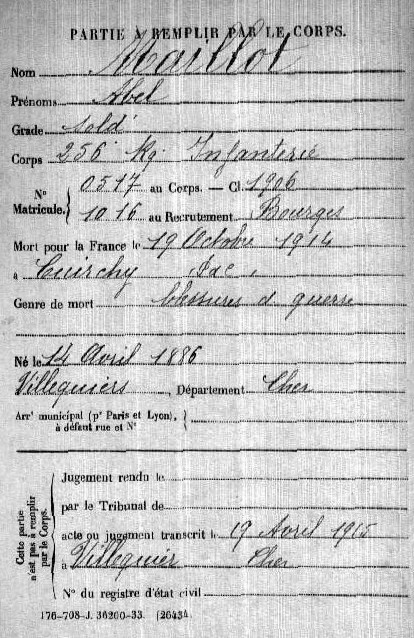 PARTIE À REMPLIR PAR LE CORPS.
Nom Maillot
Prénoms Abel
Grade Sold^t
Corps 256 Rg Infanterie
N° Matricule. { 0517 au Corps. — Cl. 1906
1016 au Recrutement Bourges
Mort pour la France le 19 Octobre 1914
à Cuinchy PdC.
Genre de mort blessures d guerre
Né le 14 Avril 1886
Villequiers, Département Cher
Arr^t municipal (p^r Paris et Lyon),
à défaut rue et N°
Cette partie n'est pas à remplir par le Corps.
Jugement rendu le
par le Tribunal de
acte ou jugement transcrit le 19 Avril 1915
à Villequier Cher
N° du registre d'état civil
176-708-J. 36200-33. (26434.